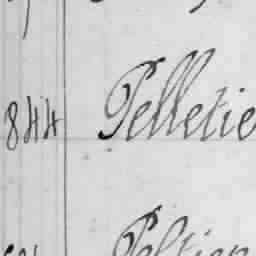 844 Pelletie
Peltier